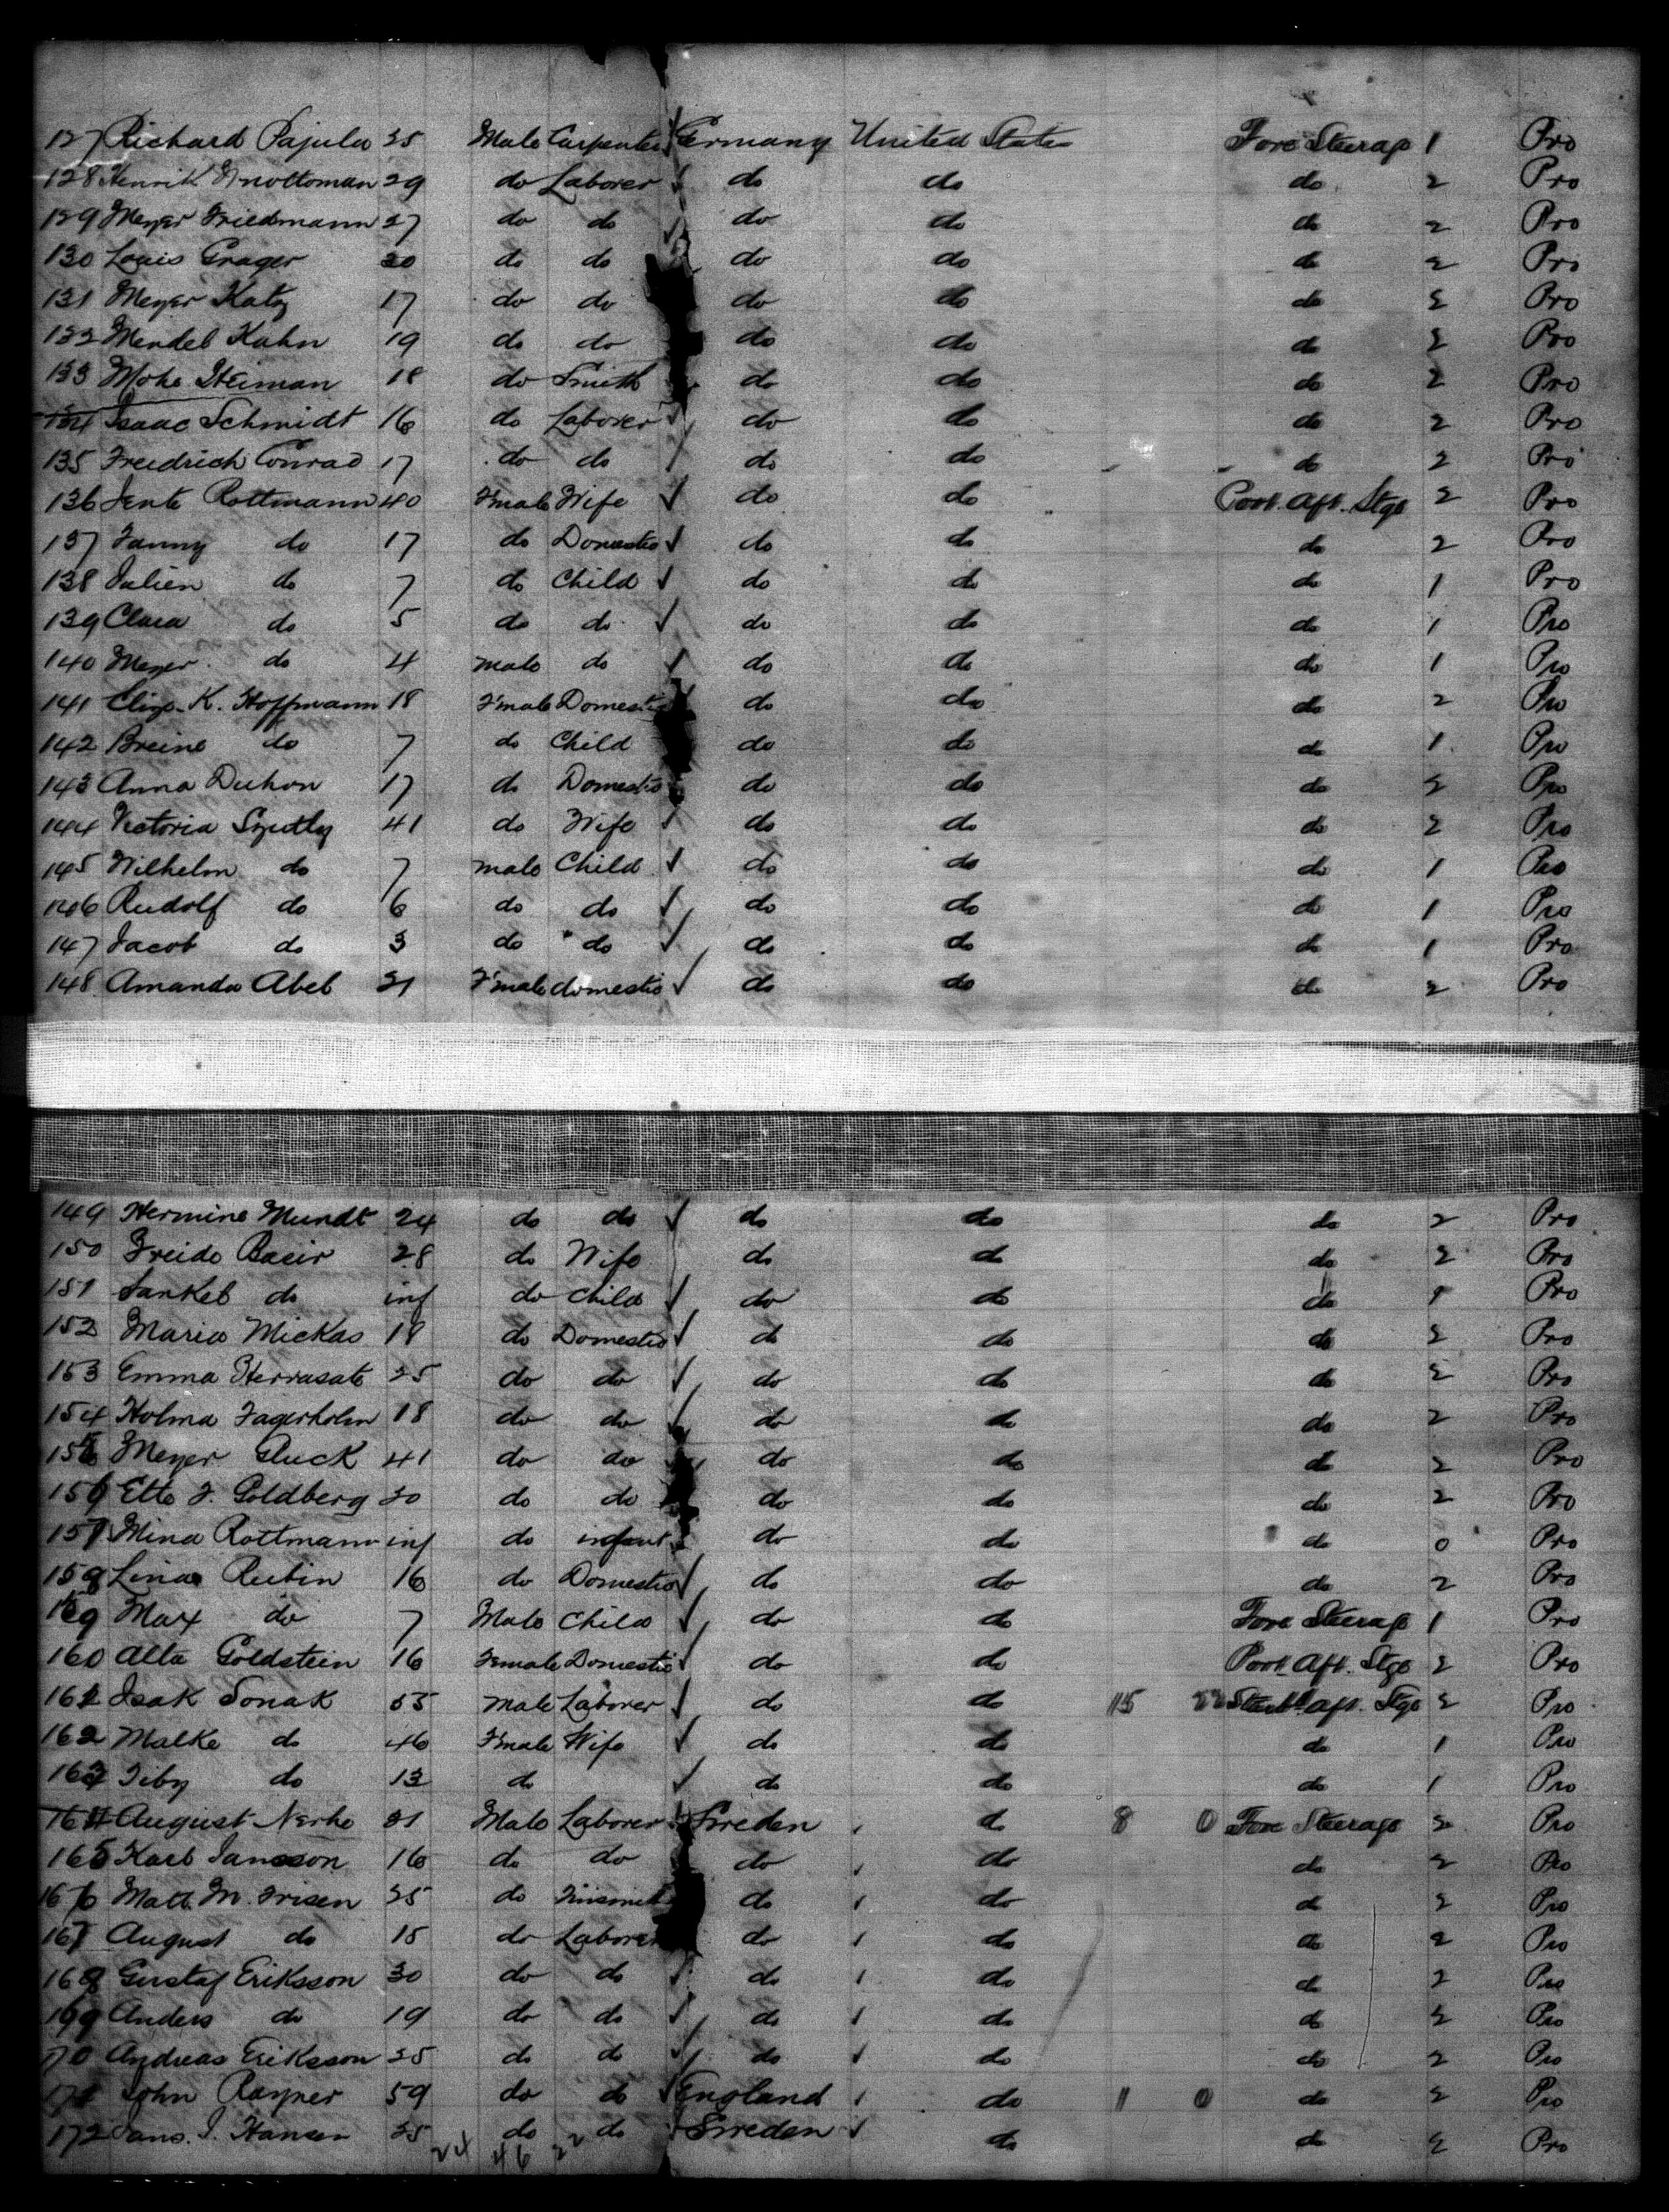 127 Richard Pajula 25 Male Carpenter Germany United States Fore Steerage 1 Pro
128 Henrik 29 do Laborer do do do 2 Pro
129 Meyer Friedmann 27 do do do do do 2 Pro
130 Louis Grager 20 do do do do do 2 Pro
131 Meyer Katz 17 do do do do do 2 Pro
132 Mendel Kahn 19 do do do do do 2 Pro
133 Steiman 18 do Smith do do do 2 Pro
134 Isaac Schmidt 16 do Laborer do do do 2 Pro
135 Freidrich Conrad 17 do do do do do 2 Pro
136 Jente Rottmann 40 Female Wife do do Port. Aft. Stge 2 Pro
137 Fanny do 17 do Domestic do do do 2 Pro
138 Julien do 7 do Child do do do 1 Pro
139 Clara do 5 do do do do do 1 Pro
140 Meyer do 4 male do do do do 1 Pro
141 K. Hoffmann 18 Female Domestic do do do 2 Pro
142 Breine do 7 do Child do do do 1 Pro
143 Anna Duhon 17 do Domestic do do do 2 Pro
144 Victoria 41 do Wife do do do 2 Pro
145 Wilhelm do 7 male Child do do do 1 Pro
146 Rudolf do 6 do do do do do 1 Pro
147 Jacob do 3 do do do do do 1 Pro
148 Amanda Abel 21 Female domestic do do do 2 Pro
149 Hermine Mundt 24 do do do do do 2 Pro
150 Freide 28 do Wife do do do 2 Pro
151 Jankel do inf do child do do do 1 Pro
152 Maria Mickas 18 do Domestic do do do 2 Pro
153 Emma 25 do do do do do 2 Pro
154 Holma Fagerholm 18 do do do do do 2 Pro
155 Meyer Gluck 41 do do do do do 2 Pro
156 Ette F. Goldberg 20 do do do do do 2 Pro
157 Mina Rottmann inf do infant do do do 0 Pro
158 Lina Rubin 16 do Domestic do do do 2 Pro
159 Max do 7 Male Child do do Fore Steerage 1 Pro
160 Alta Goldstein 16 Female Domestic do do Port Aft. Stge 2 Pro
161 Isak Sonak 55 male Laborer do do 115 22 Starb'd Aft. Stge 2 Pro
162 Malke do 46 Female Wife do do do 1 Pro
163 do 13 do do do do 1 Pro
164 August Nerho 21 Male Laborer Sweden do 8 0 Fore Steerage 2 Pro
165 Karl Jansson 16 do do do do do 2 Pro
166 Matt. M. Frisen 25 do Tinsmith do do do 2 Pro
167 August do 15 do Laborer do do do 2 Pro
168 Gustaf Eriksson 30 do do do do do 2 Pro
169 Anders do 19 do do do do do 2 Pro
70 Andreas Eriksson 25 do do do do do 2 Pro
171 John Rayner 59 do do England do 11 0 do 2 Pro
172 Jans. J. Hansen 25 do do Sweden do do 2 Pro
24 46 22